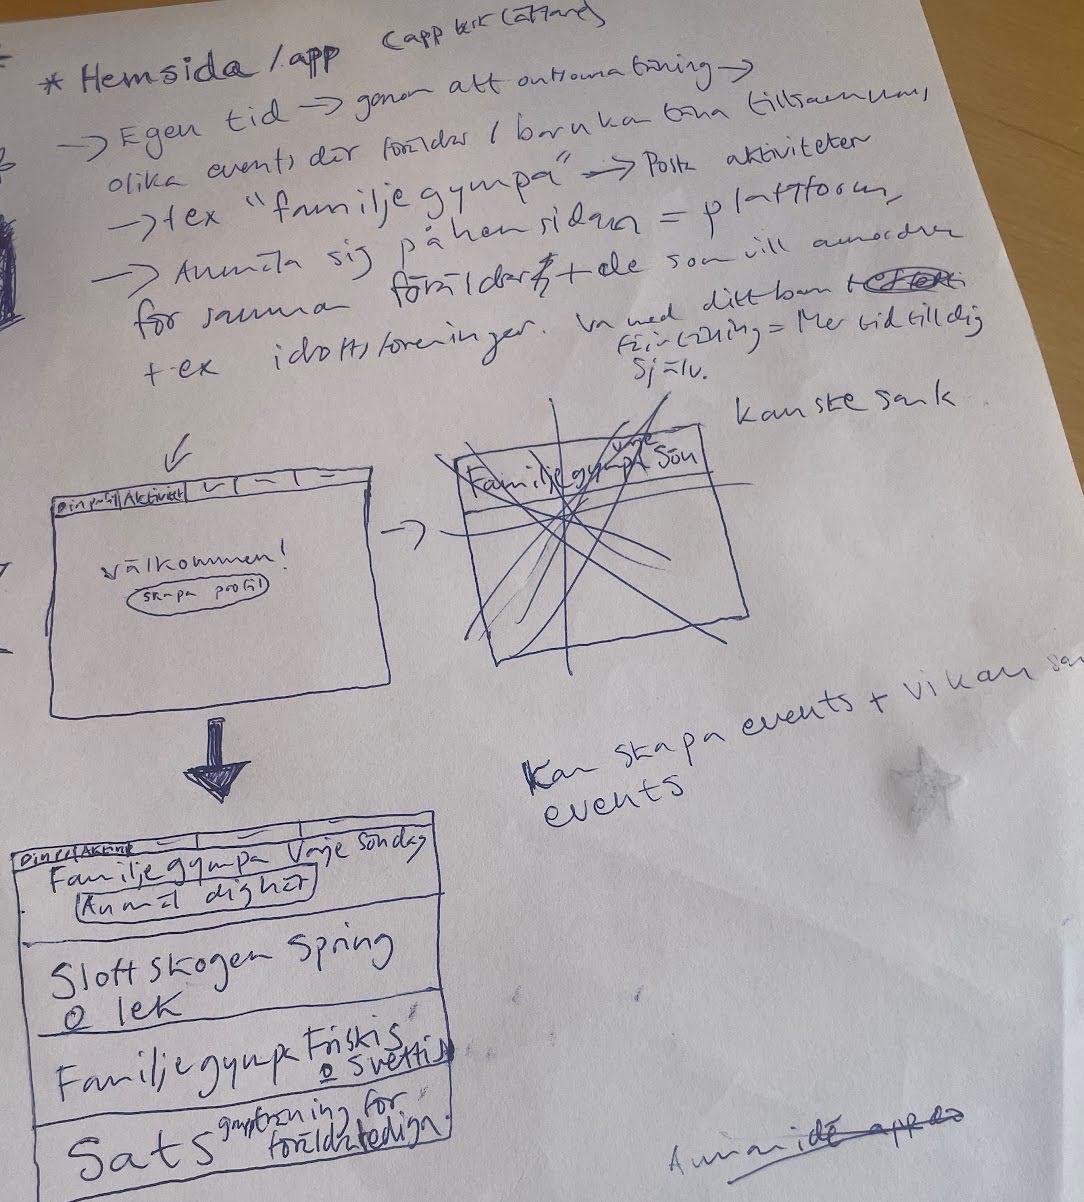 * Hemsida /app (app
→ Egen tid → genom att träning →
olika events där föräldrar / barn kan träna tillsammans,
→ tex "familjegympa" → Posta aktiviteter
→ Anmäla sig på hemsidan = plattform,
för samma föräldrar + de som vill anordna
t.ex idrottsföreningar. Va med ditt barn
träning = Mer tid till dig
själv.
kanske samk
Din profil Aktivitet
Välkommen!
skapa profil
→
Familjegympa varje Sön
Kan skapa events + vi kan
events
Familjegympa Varje Söndag
Anmäl dig här
Slottskogen Spring
o lek
Familjegympa Friskis
o Svettis
Sats gruppträning för
föräldraledigar.